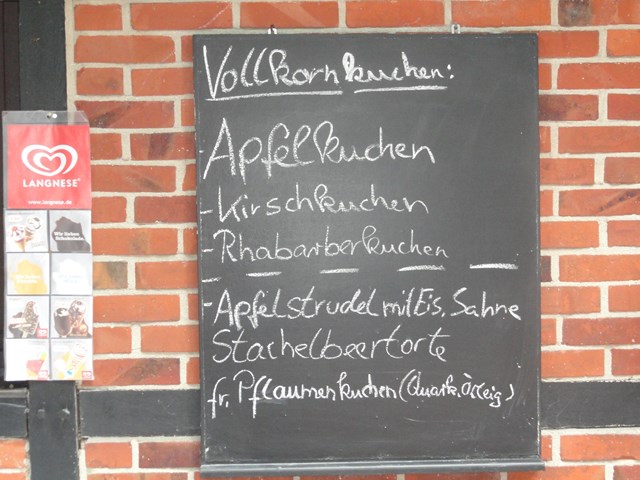 Vollkornkuchen:
Apfelkuchen
-Kirschkuchen
-Rhabarberkuchen
-Apfelstrudel mit Eis, Sahne
Stachelbeertorte
fr. Pflaumenkuchen (Quark, Ölteig)
LANGNESE
www.langnese.de